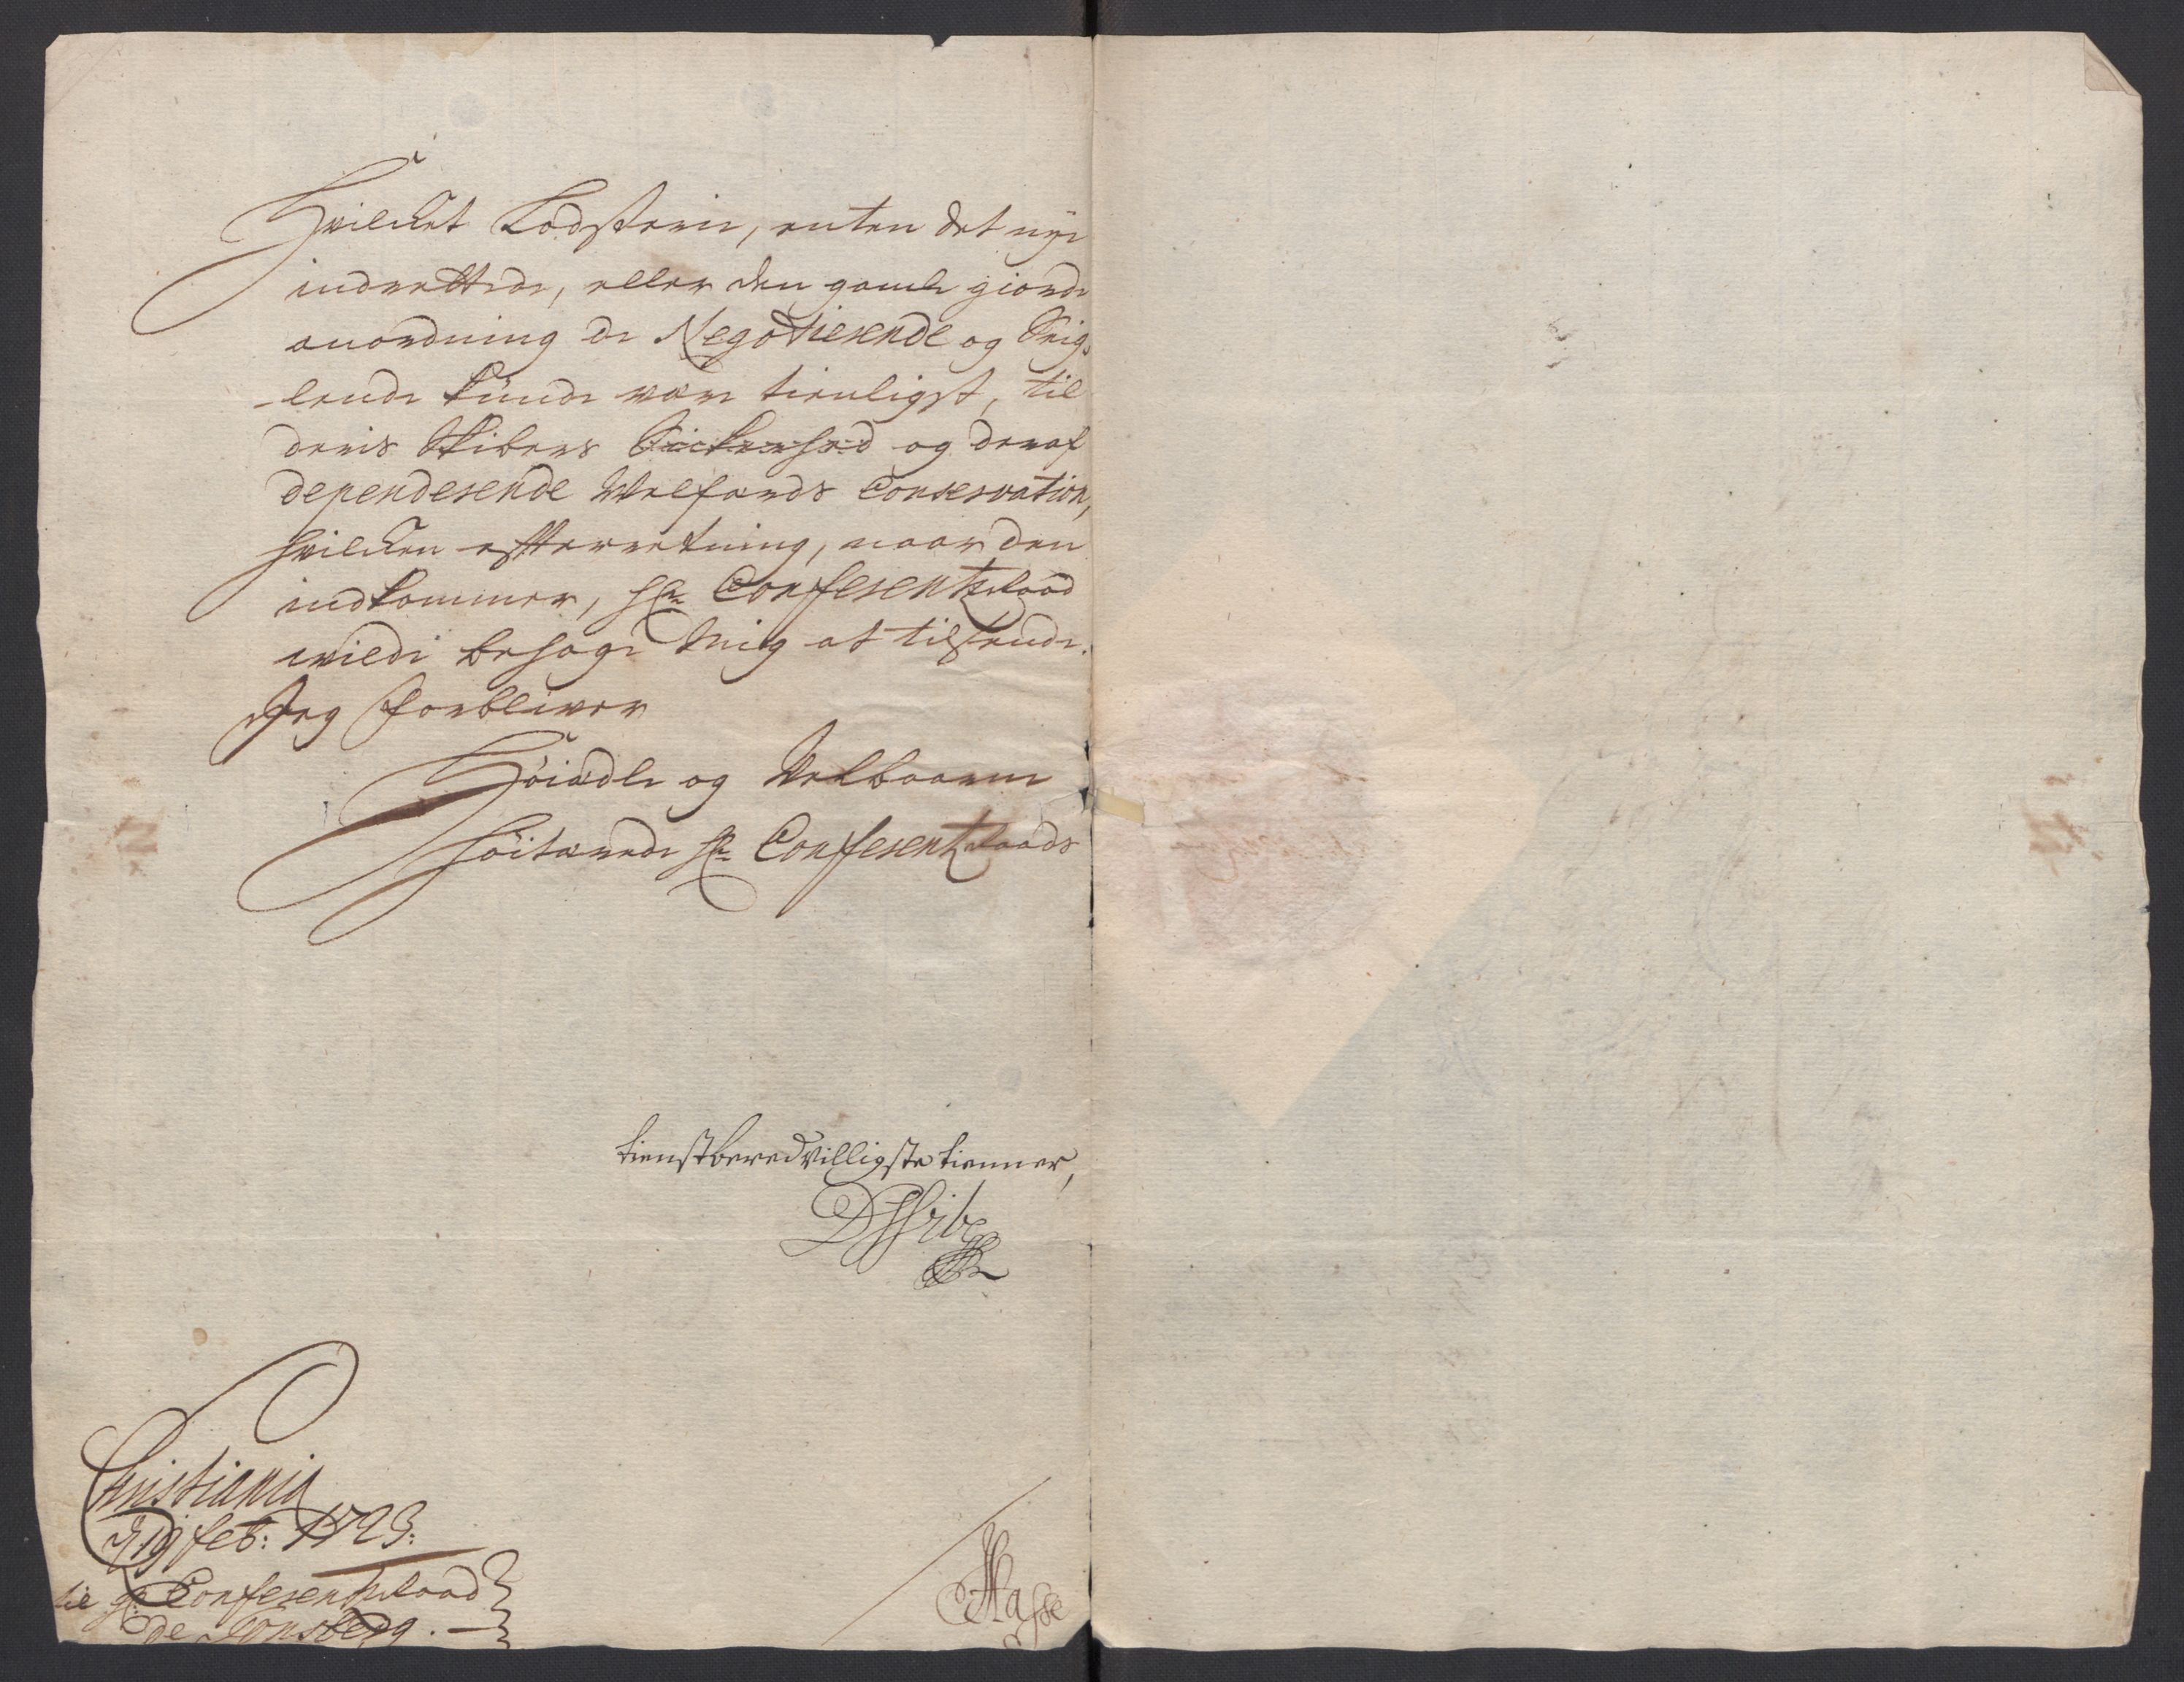 Hvilcket Lodserie, enten det nye
indrettede, eller den gamle giorde
anordning de Negotierende og Seig-
lende kunde være tienligst, til
deris Skibers Sickerhed og deraf
dependerende Velfærds Conservation,
hvilcken efterretning, naar den
indkommer, hr Conferentzraad
wilde behage Mig at tilsende.
Jeg forbliver
Høiædle og Velbaarne
høitærede hr Conferentzraads
tienstberedvilligste tienner,
DVibe
Christiania
d 19 feb: 1723:
til hr Conferentzraad
de Tonsberg.